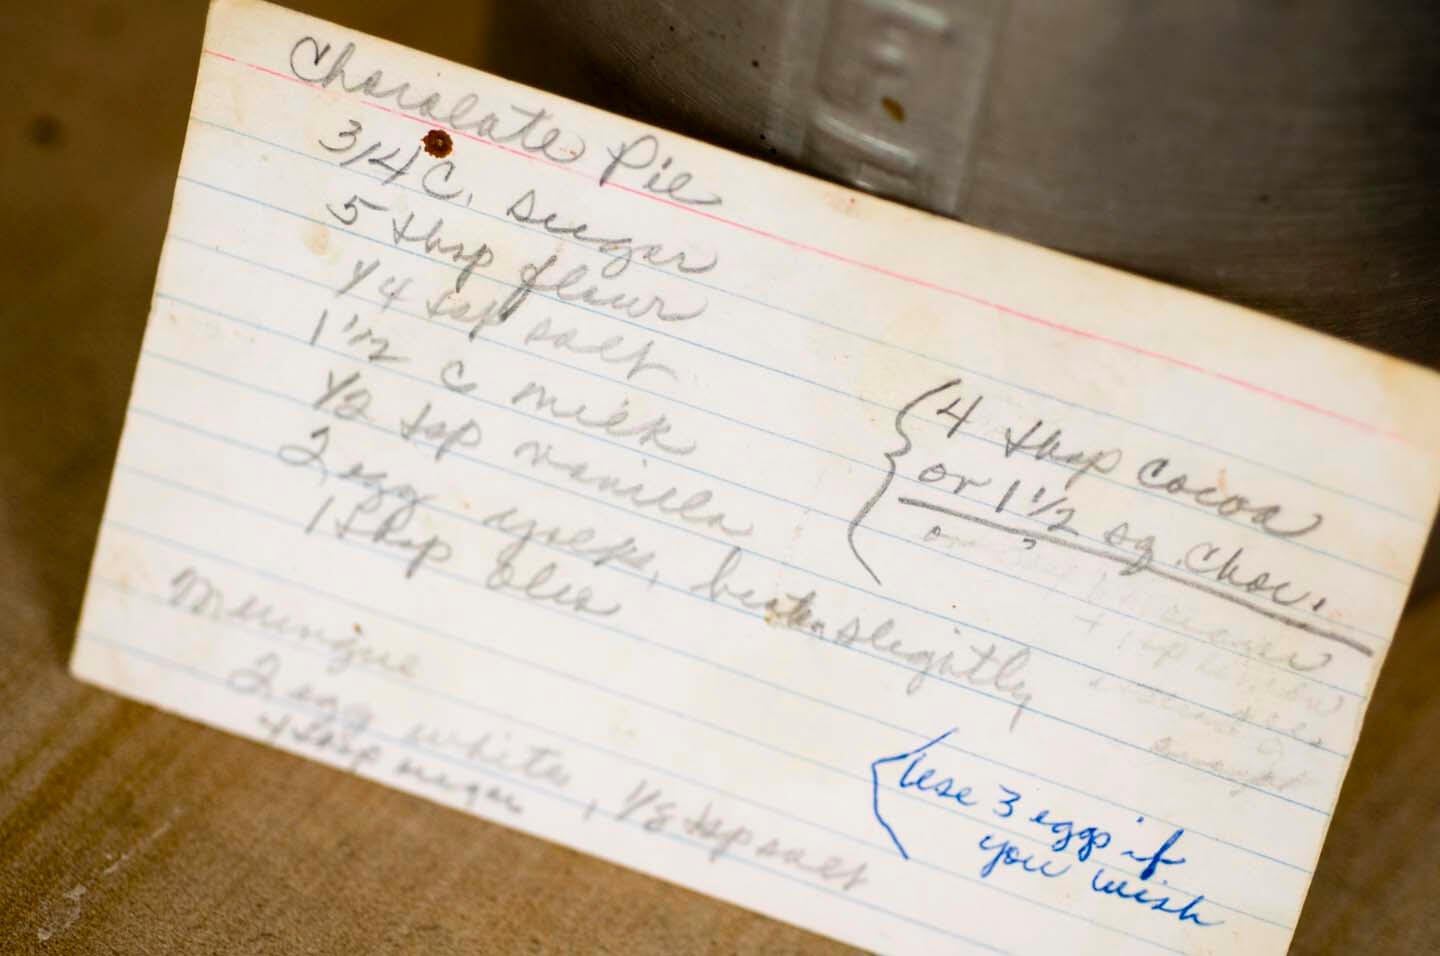 Chocolate Pie
3/4 C. sugar
5 tbsp flour
1/4 tsp salt
1 1/2 C milk
1/2 tsp vanilla
2 egg yolks, beaten slightly
1 tbsp oleo
(4 tbsp cocoa
or 1 1/2 sq. choc.
Meringue
2 egg whites, 1/8 tsp salt
4 tbsp sugar
Use 3 eggs if
you wish